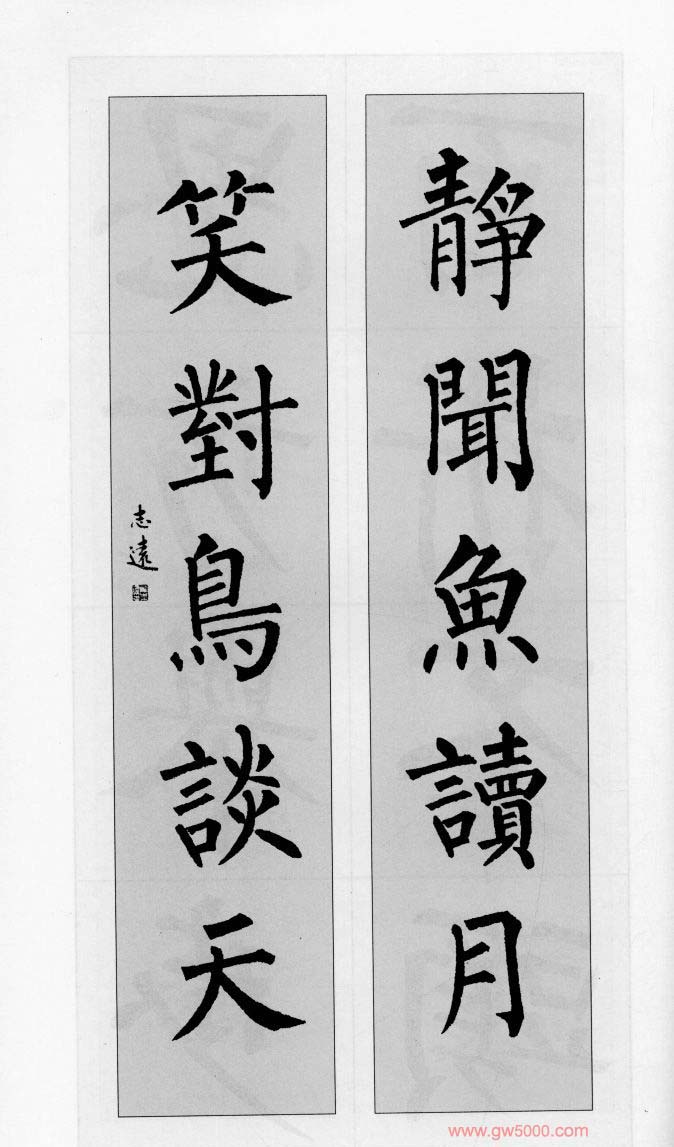 靜聞魚讀月
笑對鳥談天
志遠
www.gw5000.com